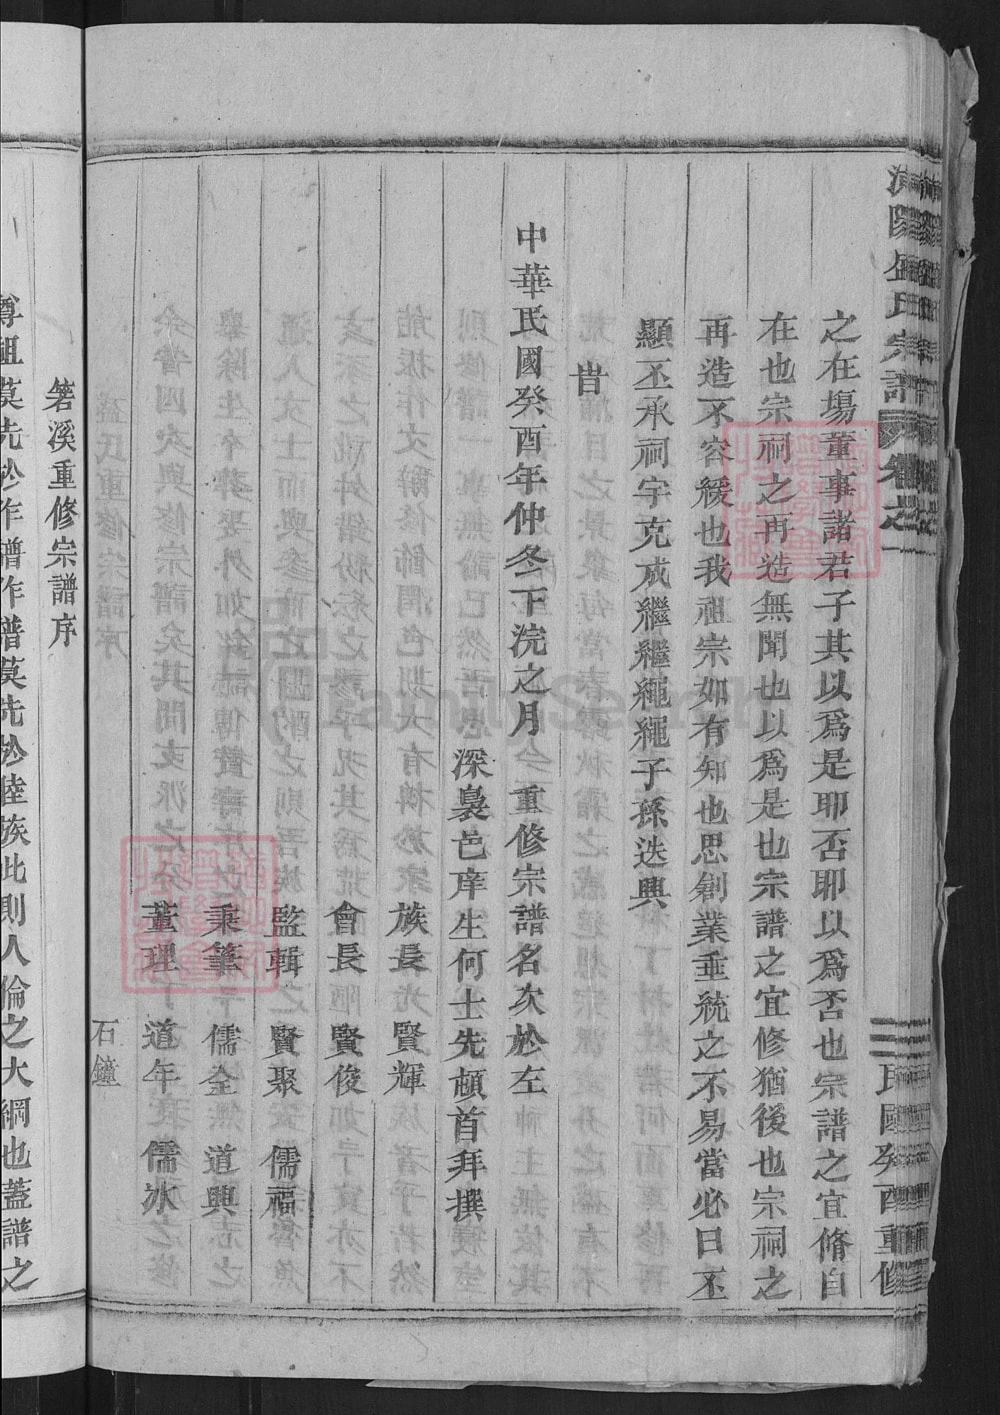 盛氏宗譜 卷之一 民國癸酉重修
之在場董事諸君子其以爲是耶否耶以爲否也宗譜之宜脩自
在也宗祠之再造無聞也以爲是也宗譜之宜修猶後也宗祠之
再造不容緩也我祖宗如有知也思創業垂統之不易當必曰丕
顯丕承祠宇克成繼繼繩繩子孫迭興
旹
中華民國癸酉年仲冬下浣之月 重修宗譜名次於左
深裊邑庠生何士先頓首拜撰
族長 賢輝
會長 賢俊
監輯 賢聚 儒福
秉筆 儒全 道興
董理 道年 儒冰
石鐘
箬溪重修宗譜序
尊祖莫先於作譜作譜莫先於睦族此則人倫之大綱也蓋譜之
FamilySearch